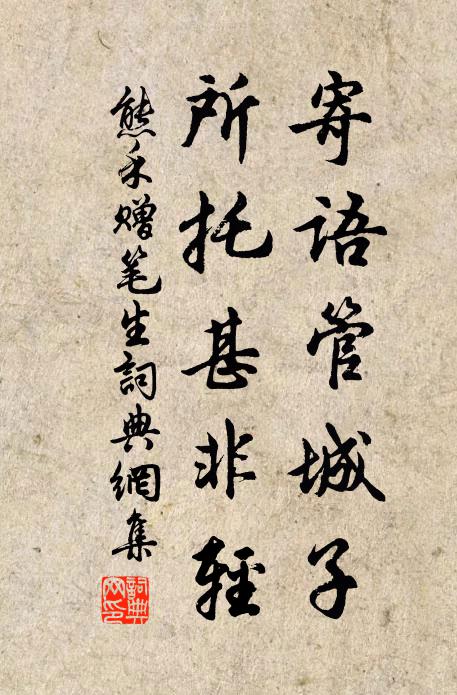 寄语管城子
所托甚非轻
熊禾赠笔生詞典網集
詞典网印